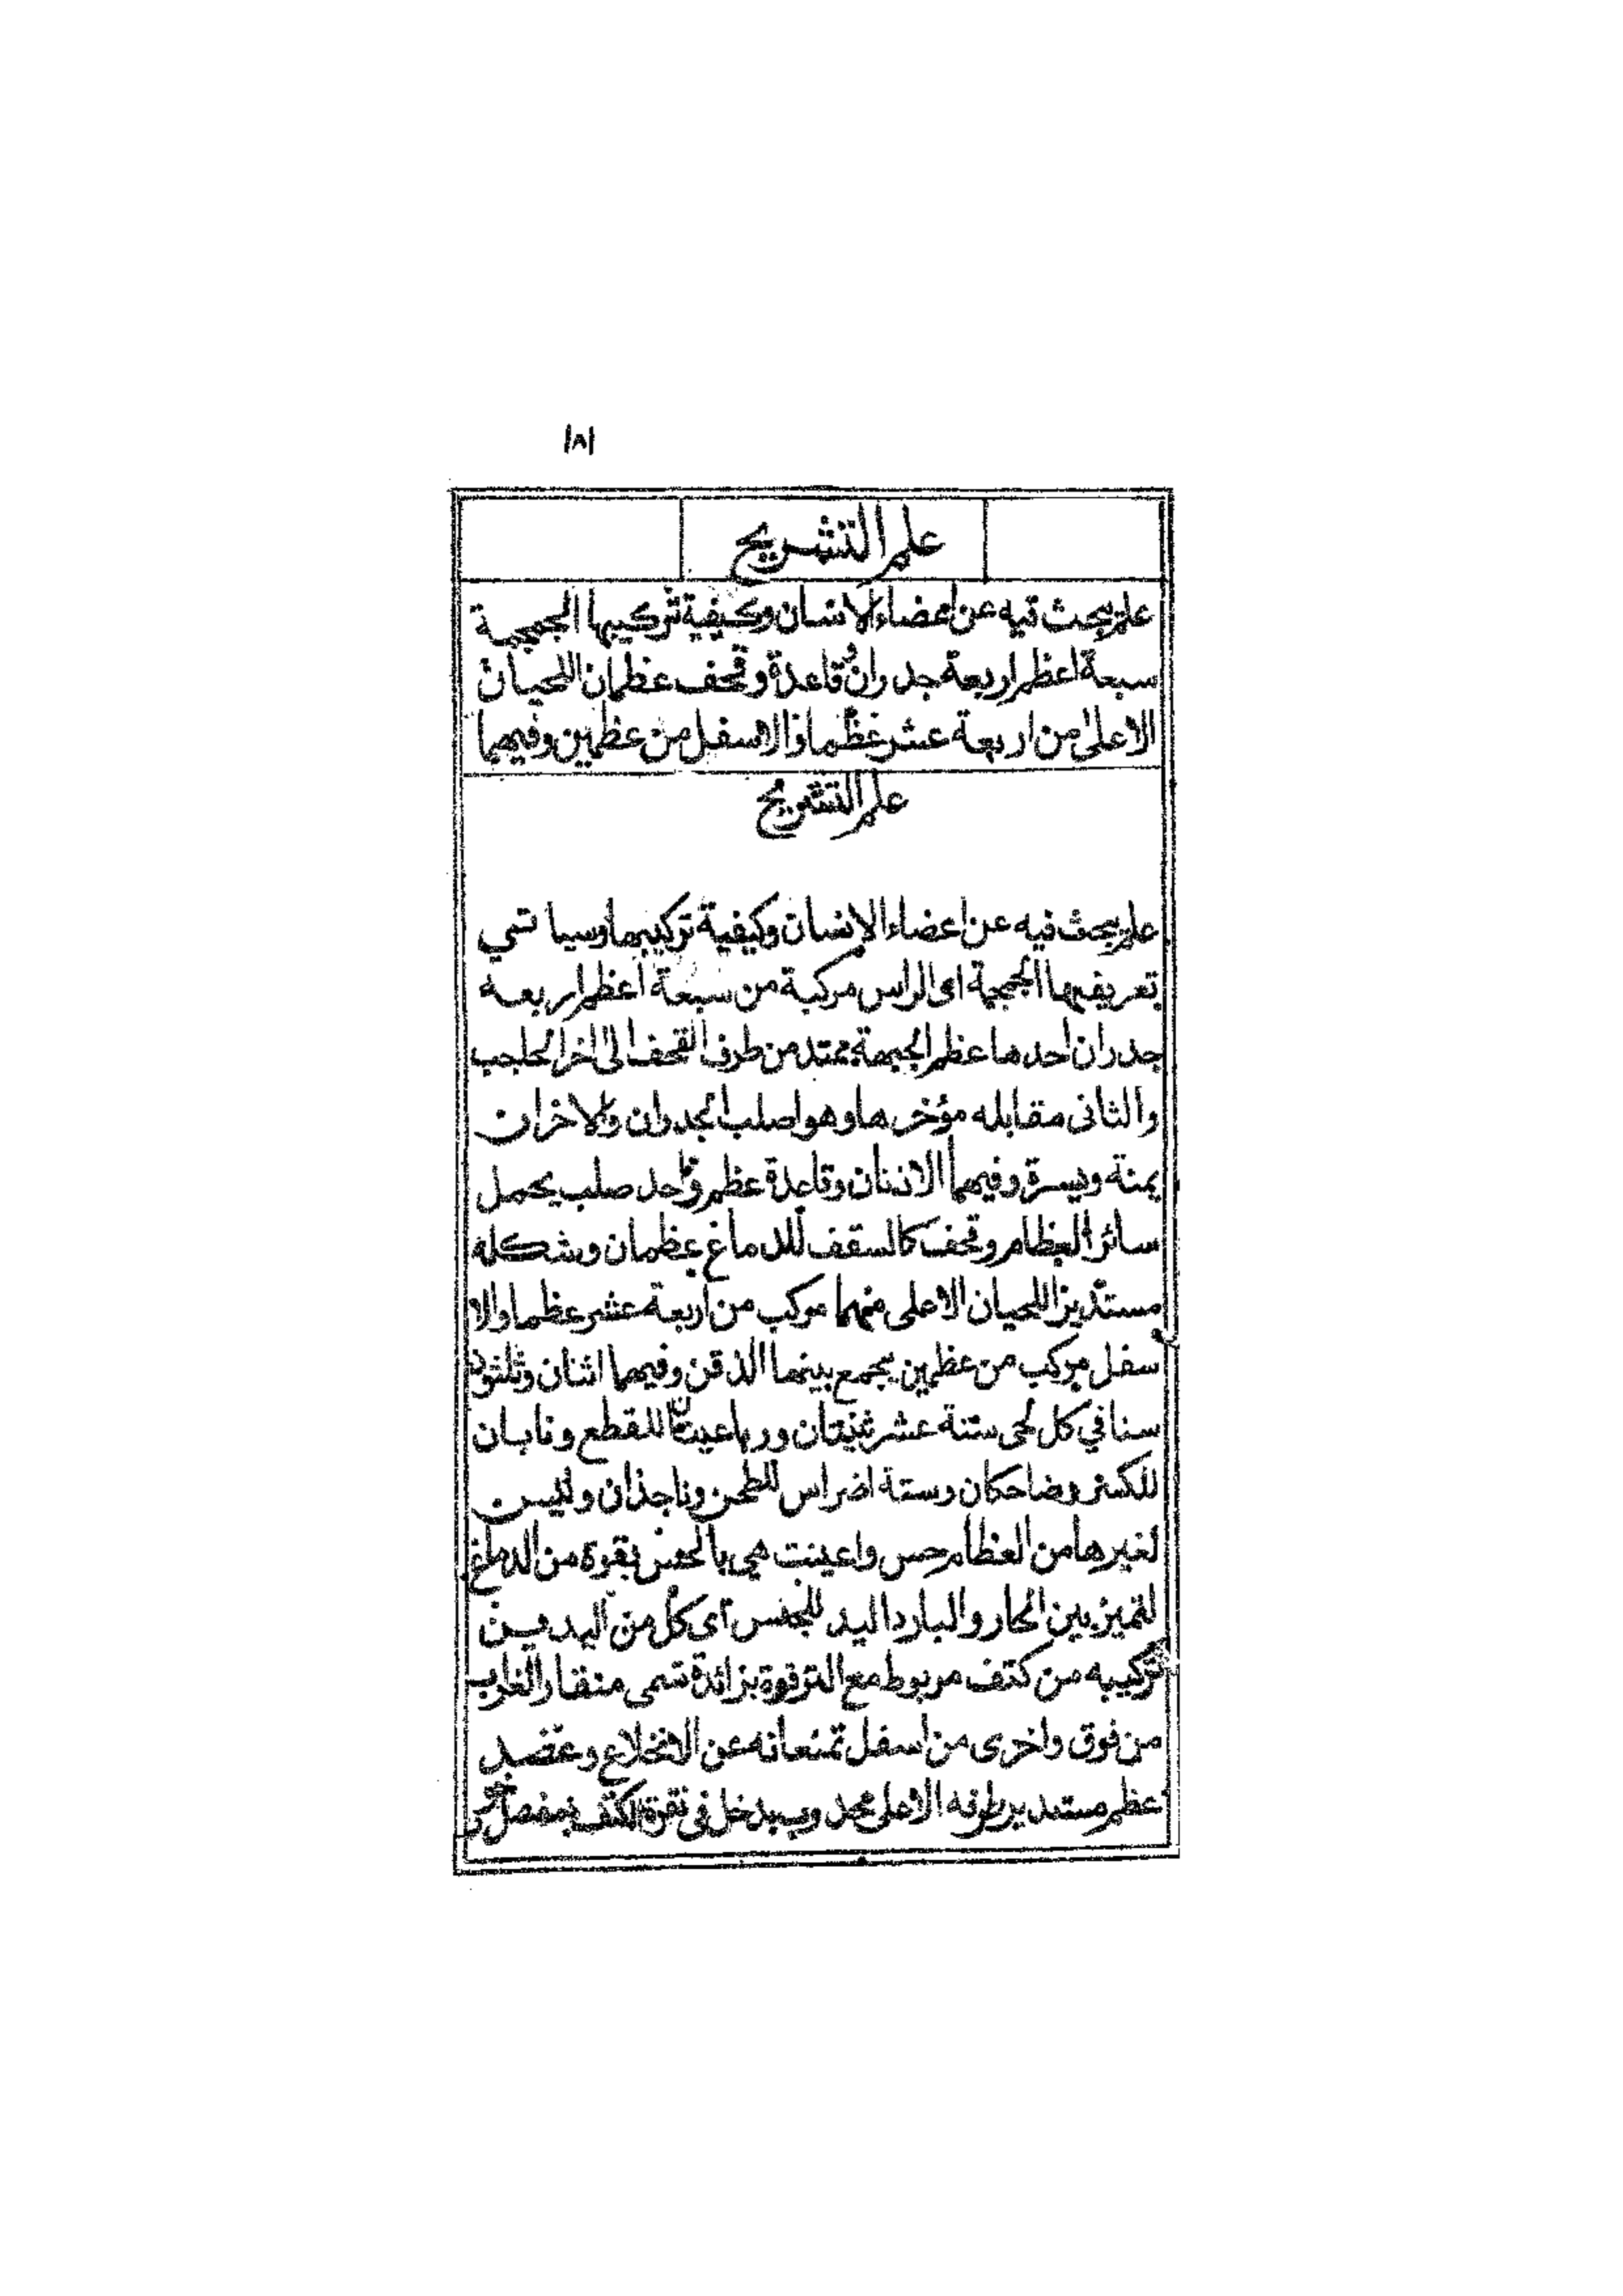 ١٨١
علم التشريح
علم يبحث فيه عن اعضاء الانسان وكيفية تركيبها الجمجمة
سبعة اعظم اربعة جدران وقاعدة وقحف عظمان اللحيان
الاعلى من اربعة عشر عظما والاسفل من عظمين وفيهما
علم التشريح
علم يبحث فيه عن اعضاء الانسان وكيفية تركيبها وسياتى
تعريفيها الجمجمة اى الراس مركبة من سبعة اعظم اربعه
جدران احدها عظم الجبهة ممتد من طرف القحف الى اخر الحاجب
والثانى مقابله مؤخرها وهو اصلب الجدران والاخران
يمنة ويسرة وفيهما الاذنان وقاعدة عظم واحد صلب يحمل
سائر العظام وقحف كالسقف للدماغ عظمان وشكله
مستدير اللحيان الاعلى منهما مركب من اربعة عشر عظما والا
سفل مركب من عظمين يجمع بينهما الذقن وفيهما اثنان وثلثون
سنا في كل لحى ستة عشر ثنيتان ورباعيتان للقطع ونابان
للكسر وضاحكان وستة اضراس للطحن وناجذان وليس
لغيرها من العظام حس واعينت هي بالحس بقوة من الدماغ
لتميز بين الحار والبارد اليد للجنس اى كل من اليدين
تركيبه من كتف مربوط مع الترقوة بزائدة تسمى منقار الغراب
من فوق واخرى من اسفل تمنعانه عن الانخلاع وعضد
عظم مستدير طرفه الاعلى محدوب يدخل فى نقرة الكتف بمفصل